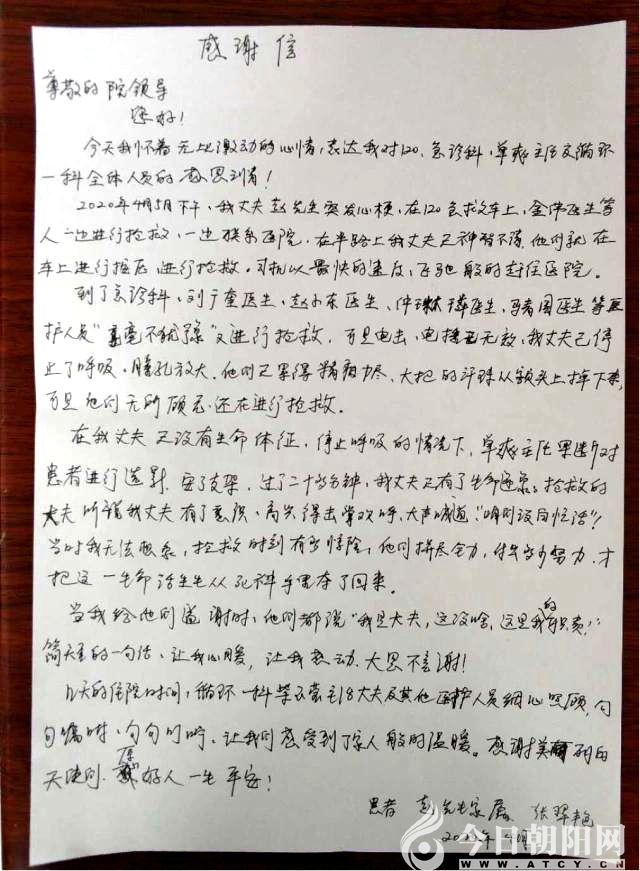 感谢信
尊敬的院领导
您好！
今天我怀着无比激动的心情，表达我对120、急诊科、单爽主任及循环
一科全体人员的感恩到着！
2020年4月5日下午，我丈夫赵先生突发心梗，在120急救车上，金伟医生等
人一边进行抢救，一边联系医院。在半路上我丈夫已神智不清，他们就在
车上进行按压，进行抢救。司机以最快的速度，飞驰般的赶往医院。
到了急诊科，刘广奎医生、赵小东医生、医生、马春国医生等医
护人员"毫不犹豫"又进行抢救，可是电击、电捶已无效，我丈夫已停
止了呼吸，瞳孔放大。他们已累得精疲力尽，大把的汗珠从额头上掉下来，
可是他们无所顾忌，还在进行抢救。
在我丈夫已没有生命体征，停止呼吸的情况下，单爽主任果断对
患者进行造影，安了支架，过了二十多分钟，我丈夫已有了生命迹象，抢救的
大夫听说我丈夫有了意识，高兴得击掌欢呼，大声喊道："咱们没白忙活"！
当时我无法想象，抢救时刻有多惊险，他们拼尽全力，付出多少努力，才
把这一生命活生生从死神手里夺了回来。
当我给他们道谢时，他们都说"我是大夫，这没啥，这是我的职责！"
简短的一句话，让我心暖，让我感动，大恩不言谢！
几天的住院时间，循环一科主治大夫及其他医护人员细心照顾，句
句嘱咐，句句叮咛，让我们感受到了家人般的温暖。感谢美丽的白
天使们，愿好人一生平安！
患者 赵先生家属 张翠艳
今日朝阳网
WWW.ATCY.CN